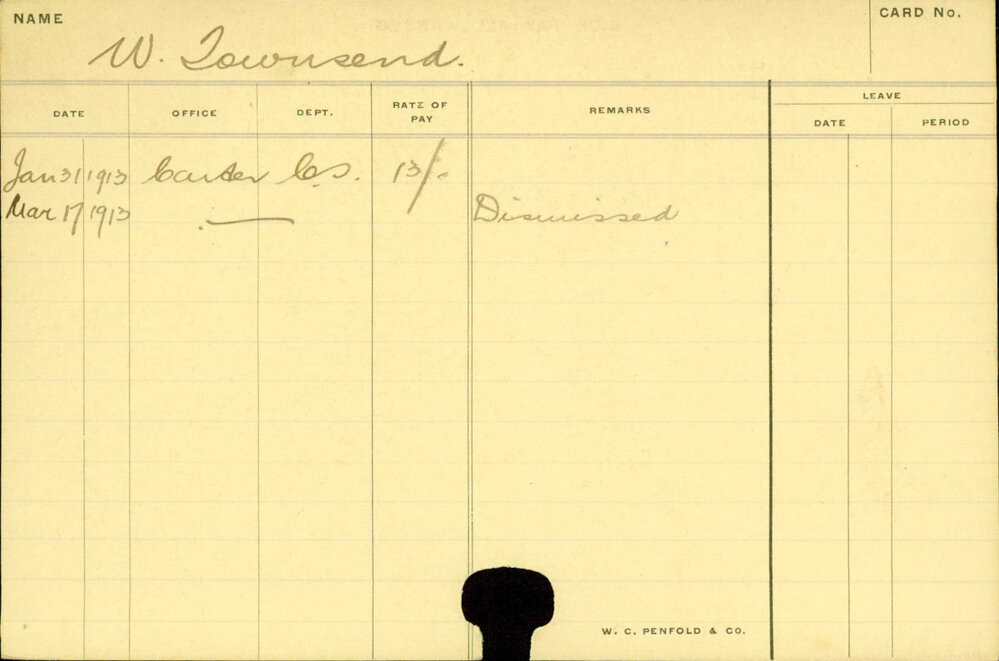 NAME
CARD No.
W. Townsend.
DATE OFFICE DEPT. RATE OF PAY REMARKS LEAVE
DATE PERIOD
Jan 31 1913 Carter C.S. 13/-
Mar 17 1913 — Dismissed
W. C. PENFOLD & CO.